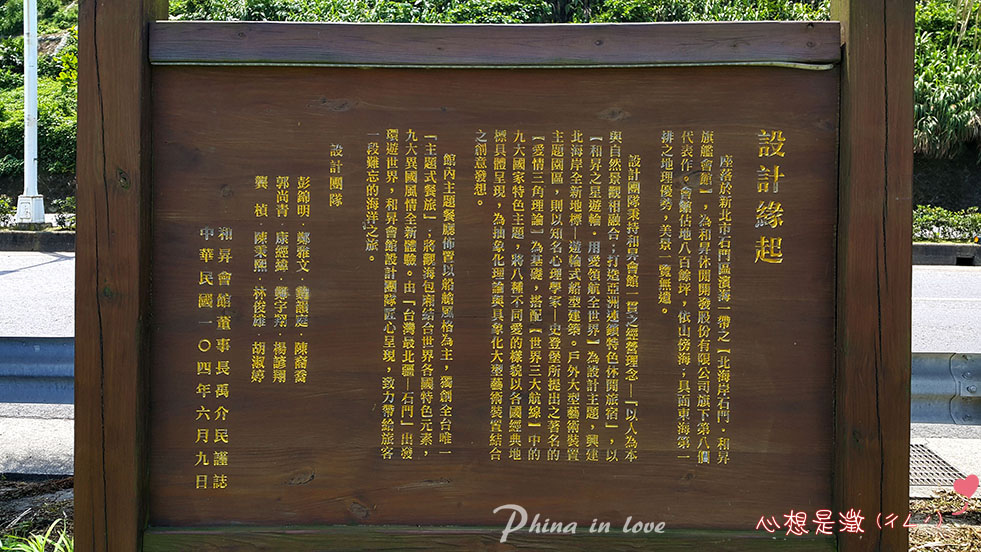 設計緣起
座落於新北市石門區濱海一帶之【北海岸石門．和昇
旗艦會館】，為和昇休閒開發股份有限公司旗下第八個
代表作。會館佔地八百餘坪，依山傍海；具面東海第一
排之地理優勢，美景一覽無遺。
設計團隊秉持和昇會館一貫之經營理念—「以人為本
與自然景觀相融合；打造亞洲連鎖特色休閒旅宿」，以
【和昇之星遊輪．用愛領航全世界】為設計主題，興建
北海岸全新地標—遊輪式船型建築。戶外大型藝術裝置
主題園區，則以知名心理學家—史登堡所提出之著名的
【愛情三角理論】為基礎，搭配【世界三大航線】中的
九大國家特色主題，將八種不同愛的樣貌以各國經典地
標具體呈現，為抽象化理論與具象化大型藝術裝置結合
之創意發想。
館內主題餐廳佈置以船艙風格為主，獨創全台唯一
「主題式餐旅」；將觀海包廂結合世界各國特色元素，
九大異國風情全新體驗。由「台灣最北疆—石門」出發
環遊世界，和昇會館設計團隊匠心呈現，致力帶給旅客
一段難忘的海洋之旅。
設計團隊
彭錦明．鄭雅文．韻庭．陳裔喬
郭尚青．康經緯．宇翔．楊諺翔
龔　楨．陳熙．林俊雄．胡淑婷
和昇會館董事長禹介民謹誌
中華民國一〇四年六月九日
Phina in love
心想是澂（ㄔㄥˊ）